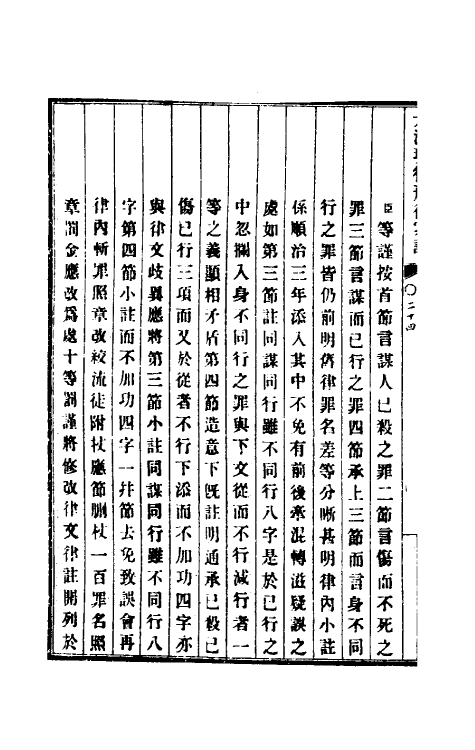 臣等謹按首節言謀人已殺之罪二節言傷而不死之
罪三節言謀而已行之罪四節承上三節而言身不同
行之罪皆仍前明舊律罪名差等分晰甚明律內小註
係順治三年添入其中不免有前後牽混轉滋疑誤之
處如第三節註同謀同行雖不同行八字是於已行之
中忽攔入身不同行之罪與下文從而不行減行者一
等之義顯相矛盾第四節造意下既註明通承已殺已
傷已行三項而又於從者不行下添而不加功四字亦
與律文歧異應將第三節小註同謀同行雖不同行八
字第四節小註而不加功四字一并節去免致誤會再
律內斬罪照章改絞流徒附杖應節刪杖一百罪名照
章罰金應改爲處十等罰謹將修改律文律註開列於